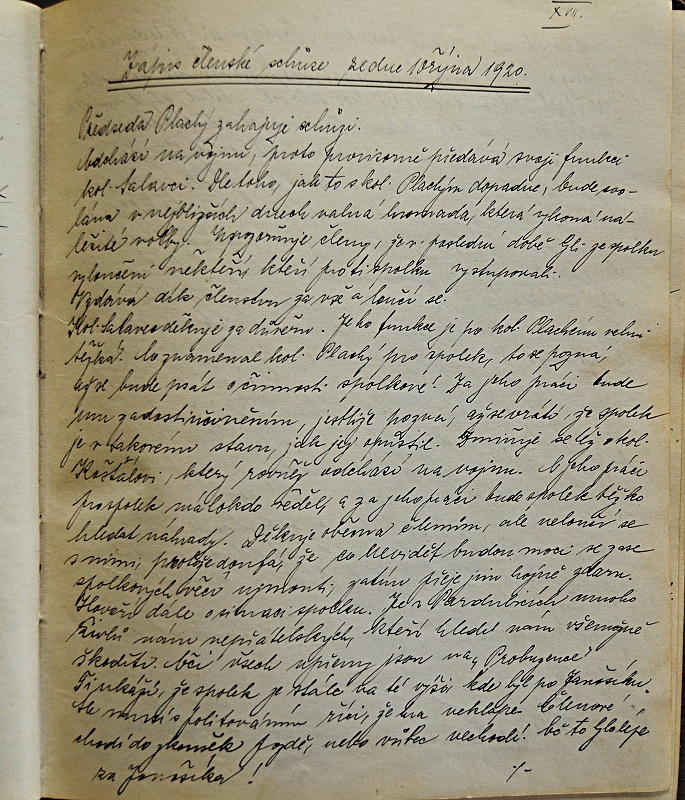 XVII.
Zápis členské schůze ze dne 10 října 1920.
Předseda Plachý zahajuje schůzi.
Odchází na vojnu, proto provisorně předává svoji funkci
kol. Salavci. Dle toho, jak to s kol. Plachým dopadne, bude svo-
lána v nejbližších dnech valná hromada, která vykoná ná-
ležité volby. Upozorňuje členy, že v poslední době byli ze spolku
vyloučeni někteří, kteří proti spolku vystupovali.
Vzdává dík členstvu za vše a loučí se.
Kol. Salavec děkuje za důvěru. Jeho funkce je po kol. Plachému velmi
těžká. Co znamenal kol. Plachý pro spolek, to se pozná,
až se bude psát o činnosti spolkové! Za jeho práci bude
mu zadostiučiněním, jestliže pozná, až se vrátí, že spolek
je v takovém stavu, jak jej opustil. Zmiňuje se též o kol.
Košťálovi, který rovněž odchází na vojnu. O jeho práci
pro spolek málokdo věděl, a za jeho práci bude spolek těžko
hledat náhrady. Děkuje oběma členům, ale neloučí se
s nimi, protože doufá, že co nevidět budou moci se zase
spolkových věcí ujmouti, zatím přeje jim hojně zdaru.
Hovoří dále o situaci spolku. Je v Pardubicích mnoho
živlů nám nepřátelských, kteří hledí nám všemožně
škoditi. Oči všech upřeny jsou na „Probuzence"
Ti ukáží, že spolek je stále na té výši kde byl po Janošíku.
že na
chodí do zkoušek pozdě, nebo vůbec nechodí!
za Janošíka!
-/-